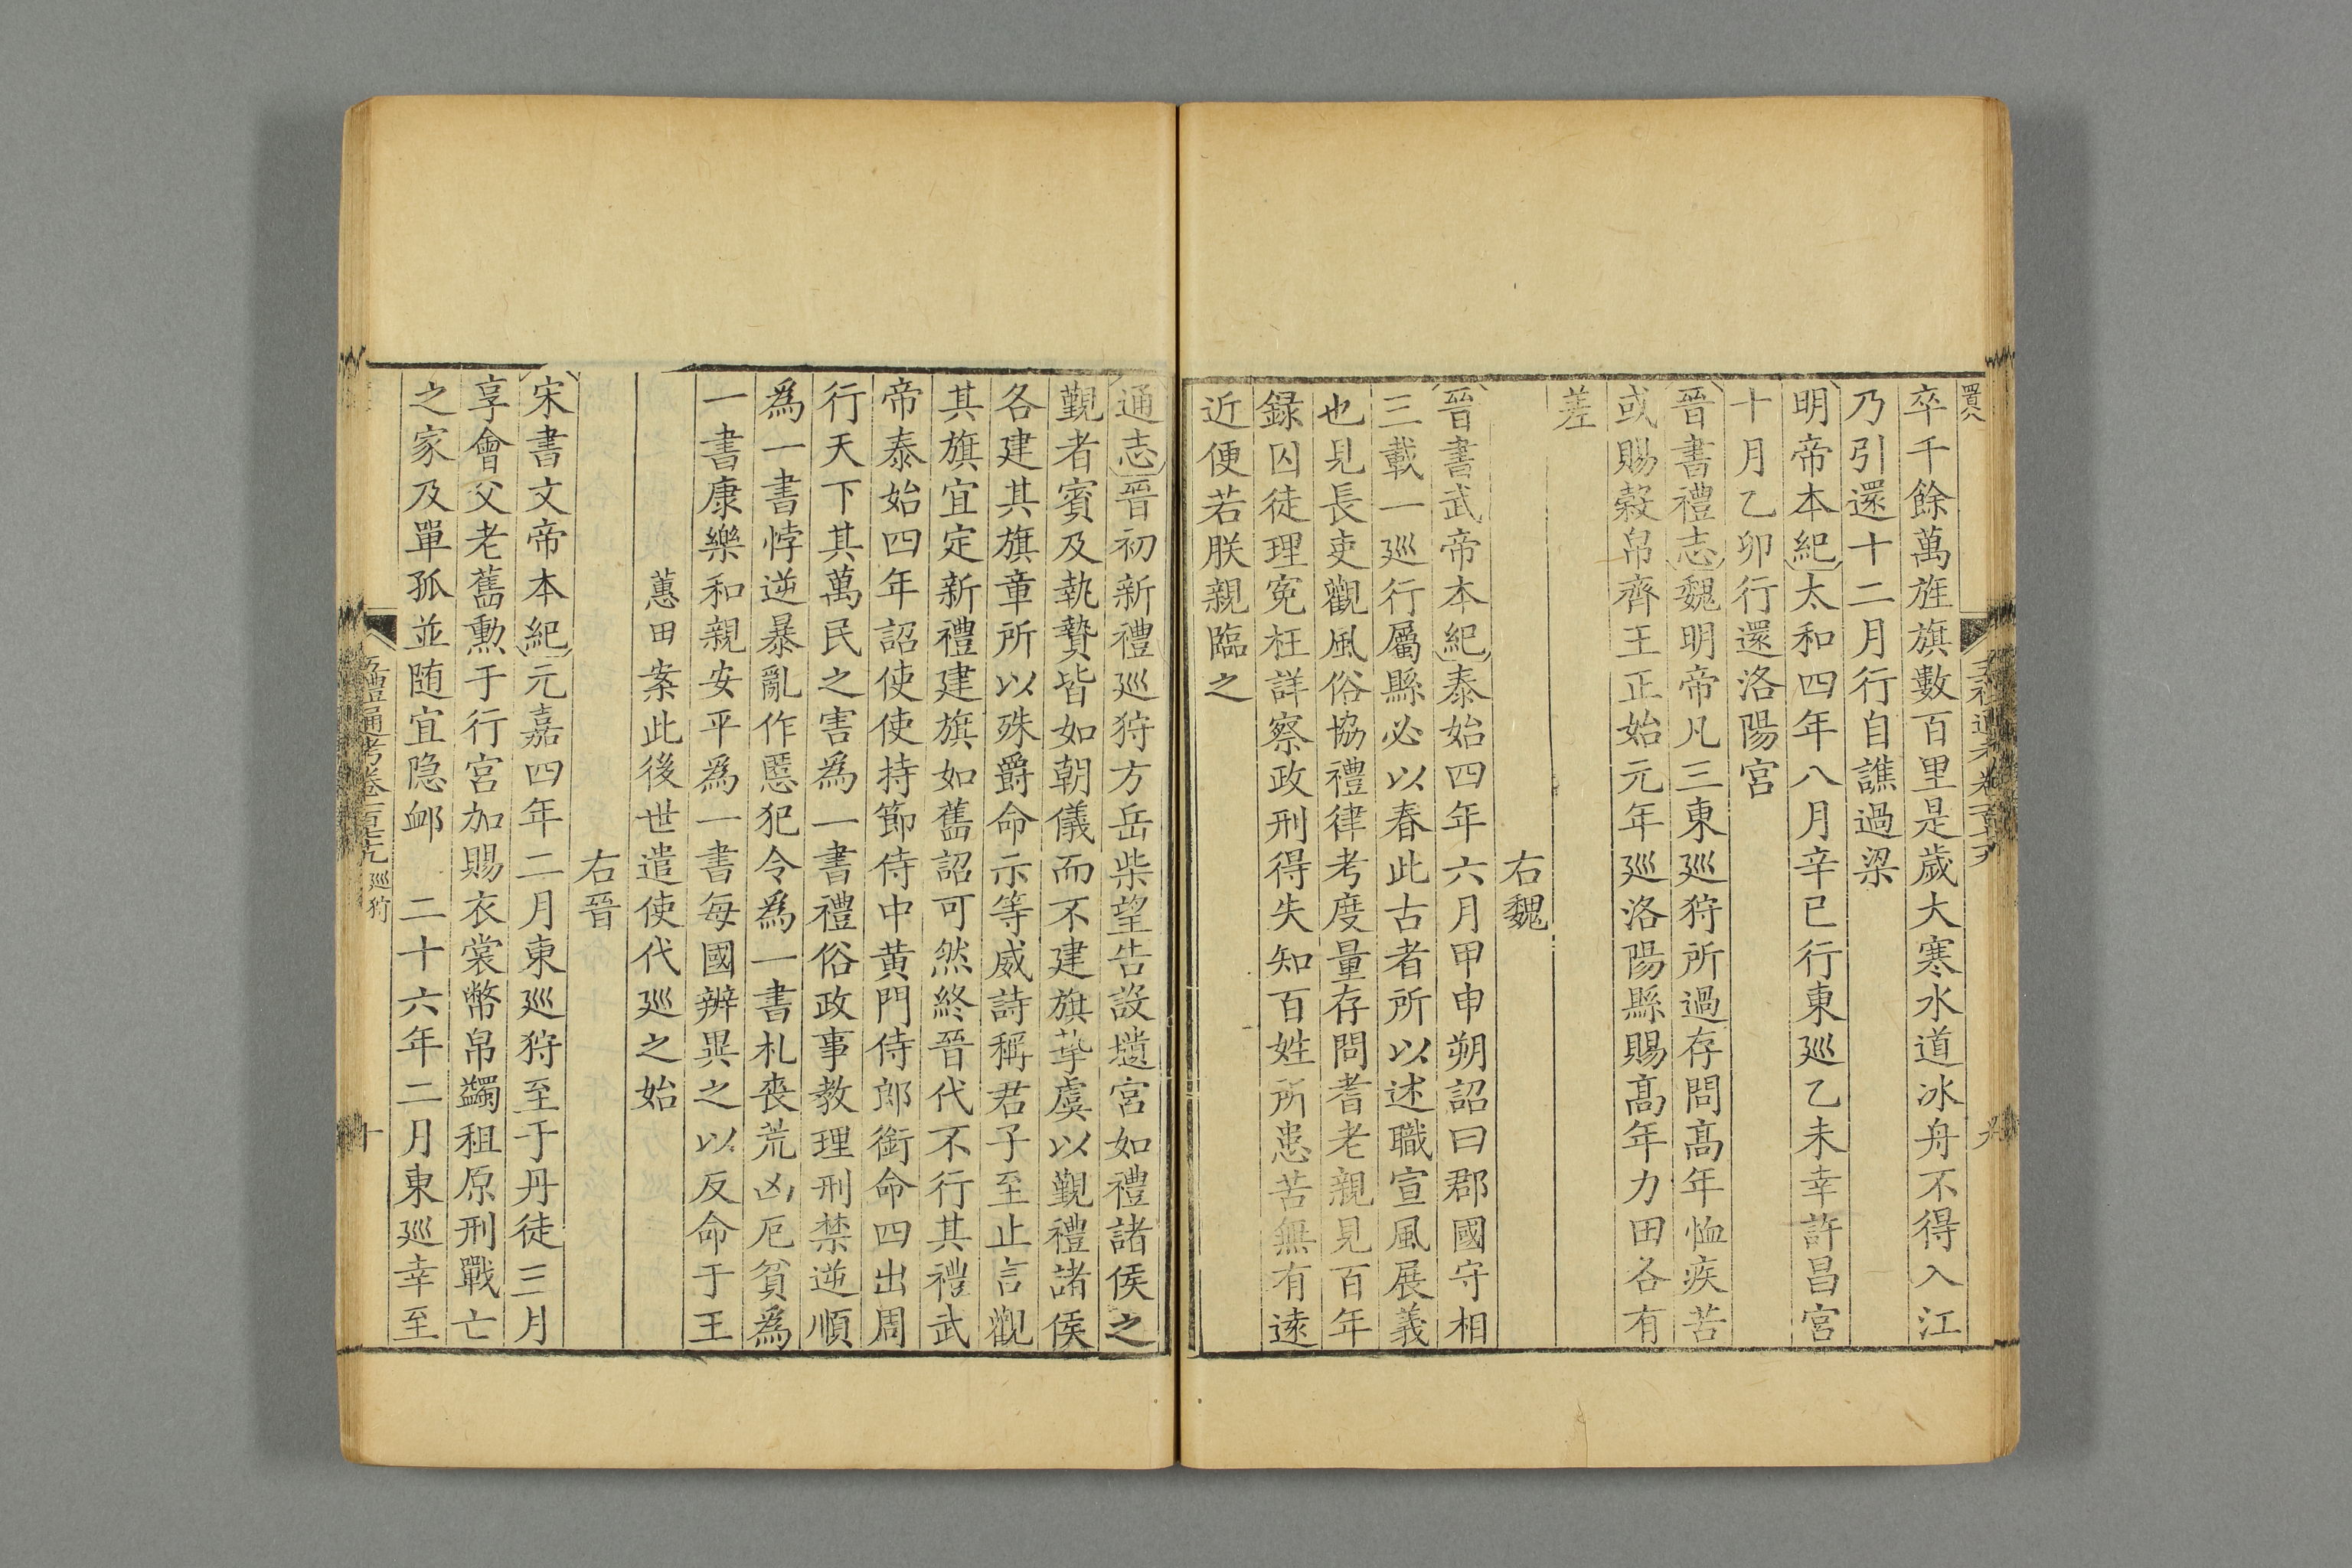 卒千餘萬旌旗數百里是歲大寒水道冰舟不得入江
乃引還十二月行自譙過梁
明帝本紀太和四年八月辛巳行東巡乙未幸許昌宮
十月乙卯行還洛陽宮
晉書禮志魏明帝凡三東巡狩所過存問高年恤疾苦
或賜穀帛齊王正始元年巡洛陽縣賜高年力田各有
差
右魏
晉書武帝本紀泰始四年六月甲申朔詔曰郡國守相
三載一巡行屬縣必以春此古者所以述職宣風展義
也見長吏觀風俗協禮律考度量存問耆老親見百年
録囚徒理寃枉詳察政刑得失知百姓所患苦無有遠
近便若朕親臨之
通志晉初新禮巡狩方岳柴望告設壝宮如禮諸侯之
覲者賓及執贄皆如朝儀而不建旗摯虞以覲禮諸侯
各建其旗章所以殊爵命示等威詩稱君子至止言觀
其旗宜定新禮建旗如舊詔可然終晉代不行其禮武
帝泰始四年詔使使持節侍中黄門侍郎銜命四出周
行天下其萬民之害為一書禮俗政事教理刑禁逆順
爲一書悖逆暴亂作慝犯令爲一書札喪荒凶厄貧爲
一書康樂和親安平爲一書每國辨異之以反命于王
蕙田案此後世遣使代巡之始
右晉
宋書文帝本紀元嘉四年二月東巡狩至于丹徒三月
享會父老舊勲于行宮加賜衣裳幣帛蠲租原刑戰亡
之家及單孤並随宜隐衈　二十六年二月東巡幸至
五禮通考卷一百七十九 巡狩
十